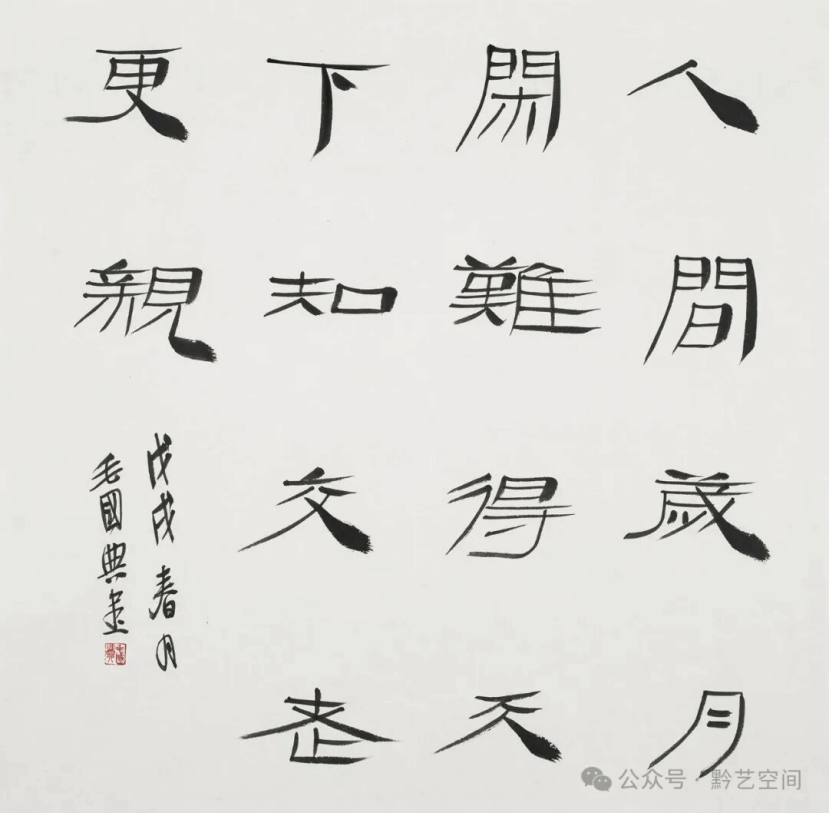 人間歲月
閑難得天
下知交老
更親
戊戌春月
毛國典書
公众号·黔艺空间